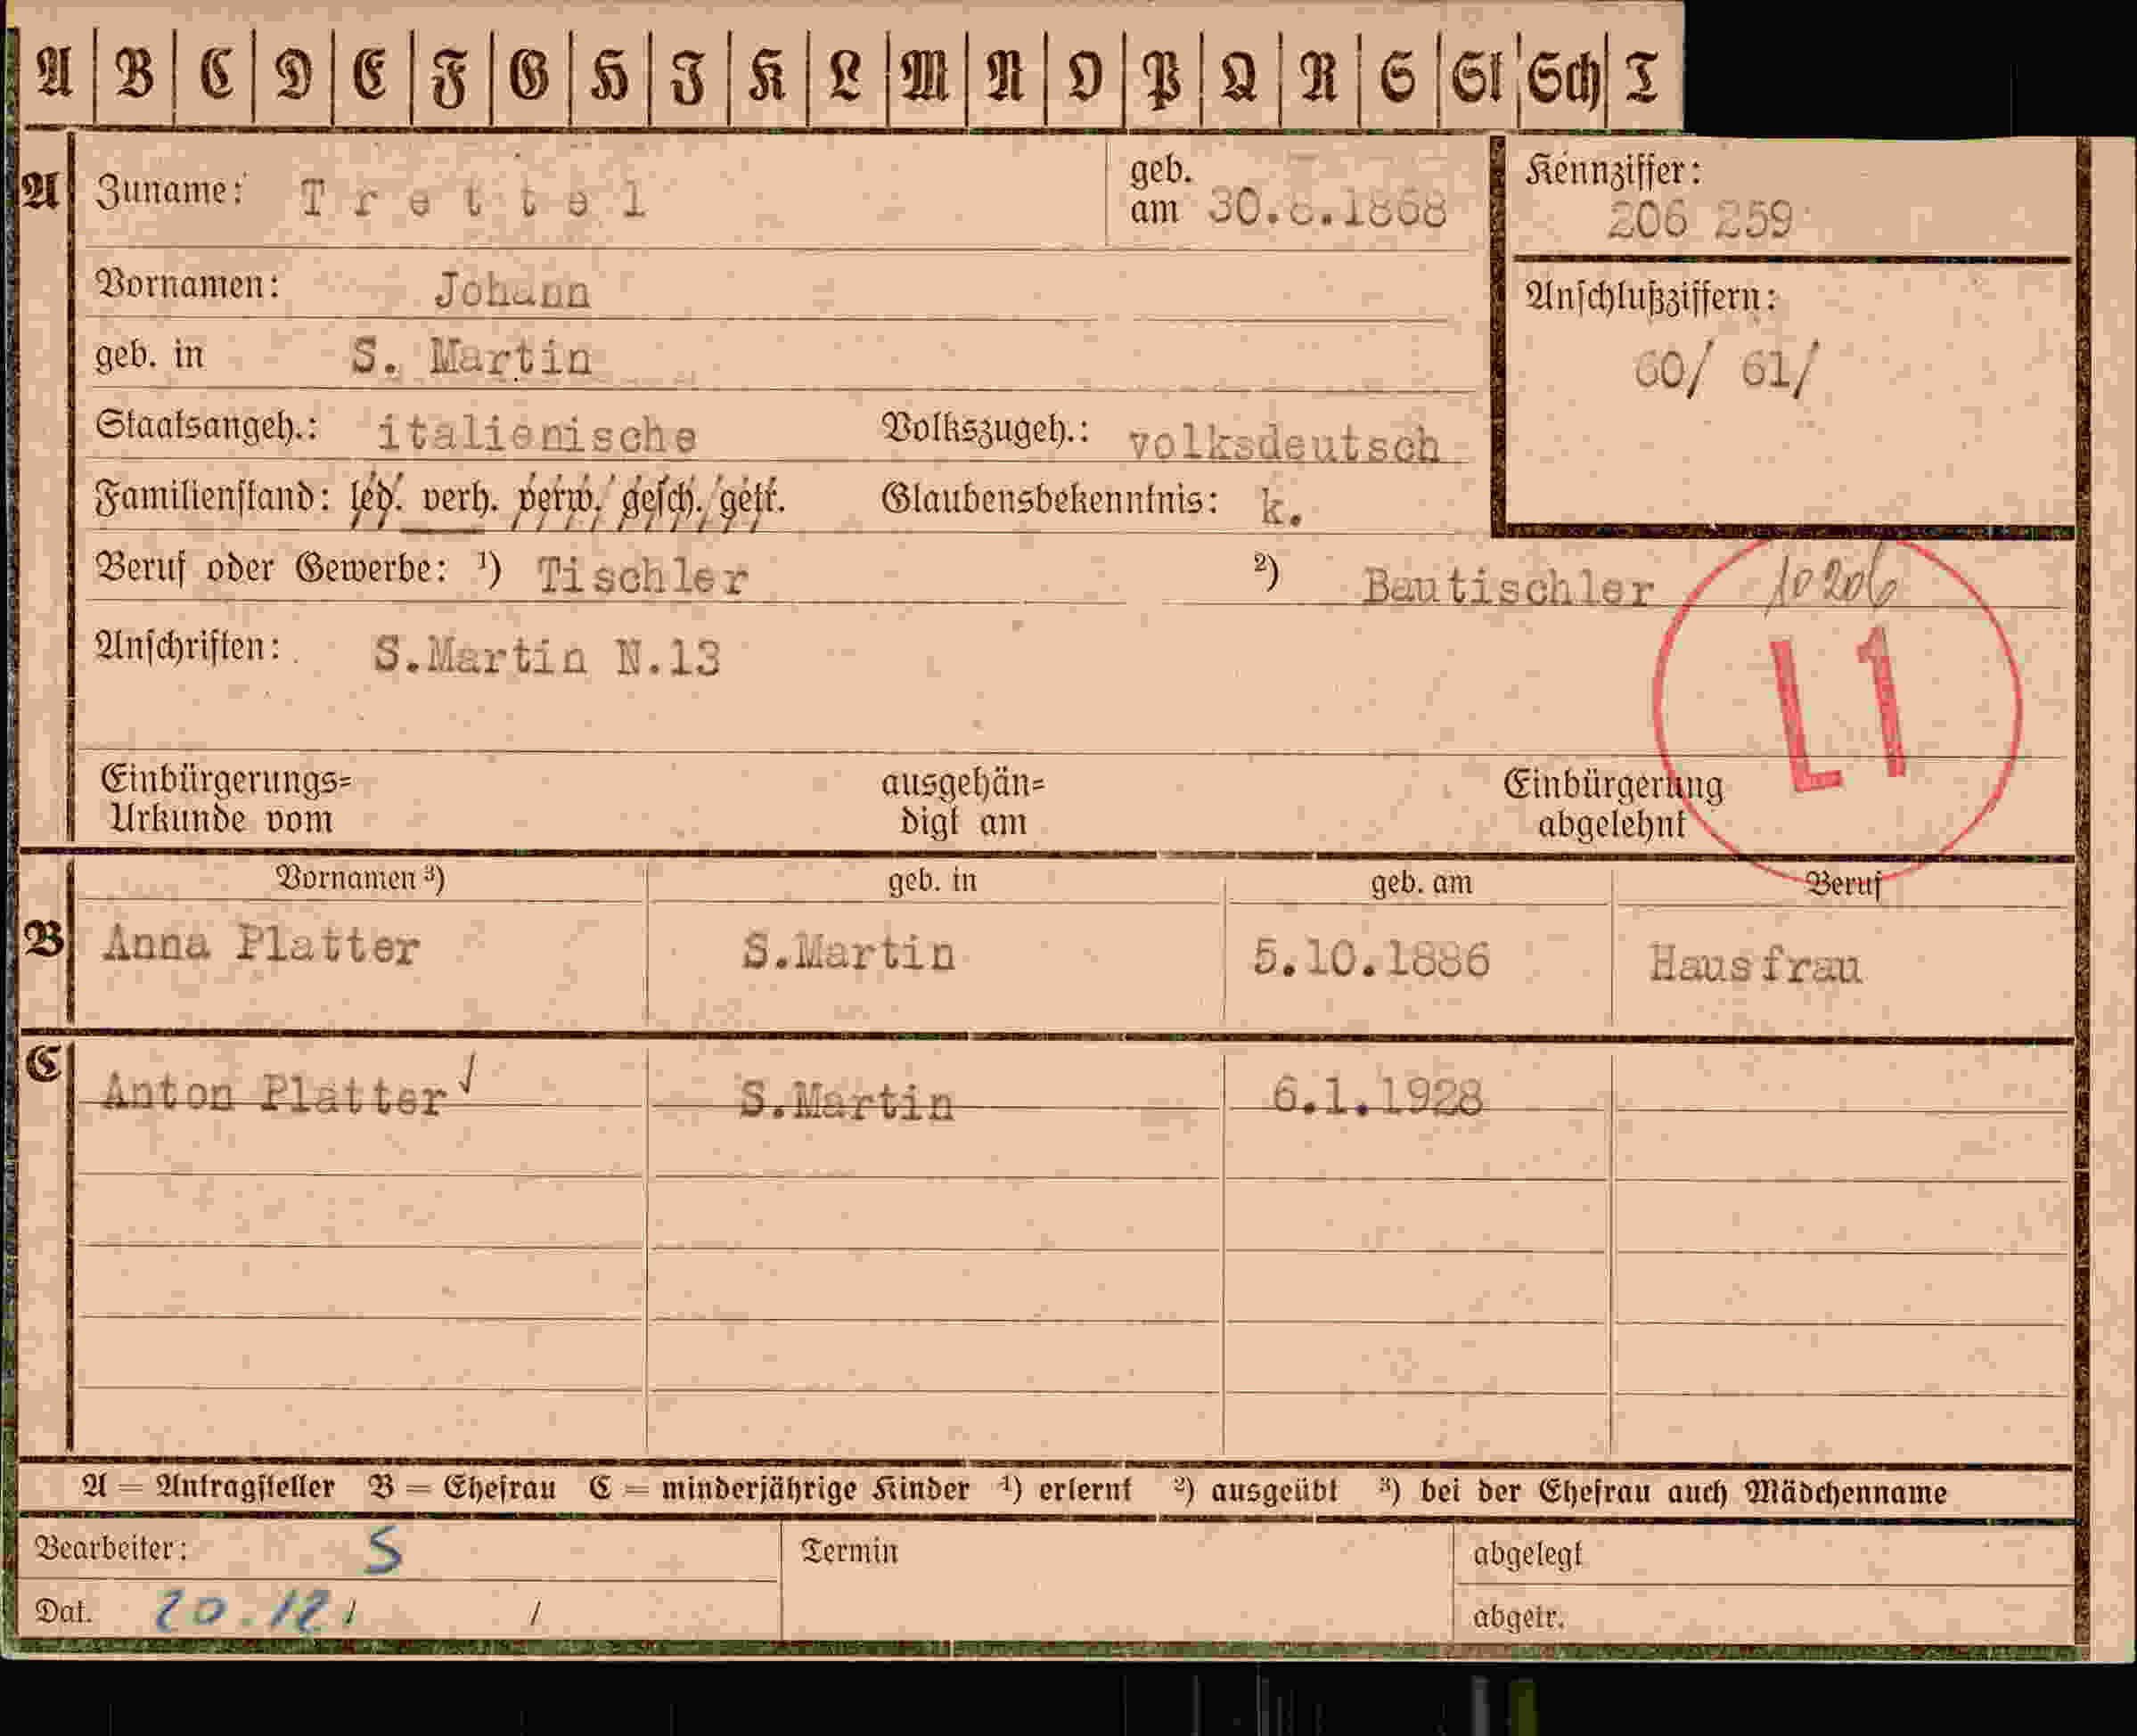 A B C D E F G H I K L M N O P Q R S St Sch T
A Zuname: Trettel geb. am 30.8.1868
Kennziffer: 206 259
Vornamen: Johann
geb. in S. Martin
Anschlußziffern: 60/ 61/
Staatsangeh.: italienische Volkszugeh.: volksdeutsch
Familienstand: led. verh. verw. gesch. getr. Glaubensbekenntnis: k.
Beruf oder Gewerbe: ¹) Tischler ²) Bautischler 10206
Anschriften: S.Martin N.13
L1
Einbürgerungs=
Urkunde vom
ausgehän=
digt am
Einbürgerung
abgelehnt
Vornamen ³) geb. in geb. am Beruf
B Anna Platter S.Martin 5.10.1886 Hausfrau
C Anton Platter S.Martin 6.1.1928
A = Antragsteller B = Ehefrau C = minderjährige Kinder ¹) erlernt ²) ausgeübt ³) bei der Ehefrau auch Mädchenname
Bearbeiter: S Termin abgelegt
Dat. 20.12 / / abgetr.